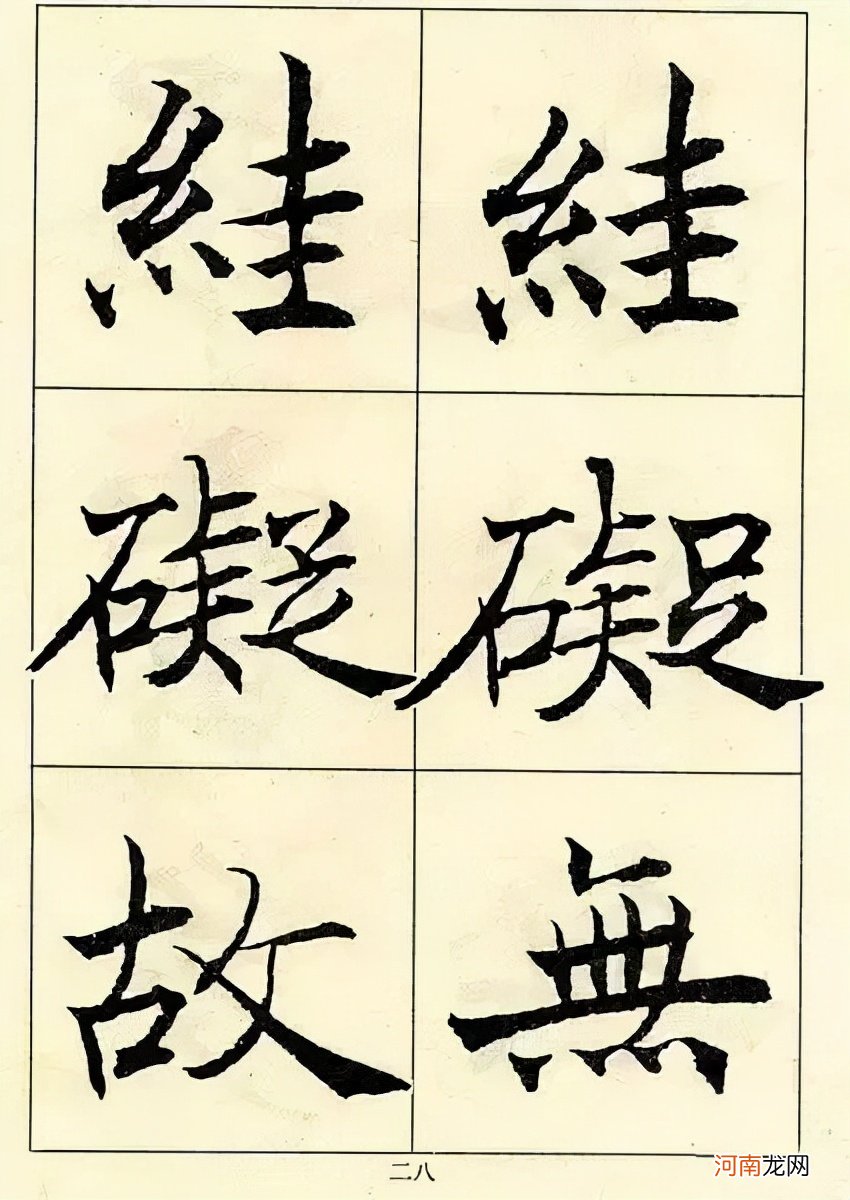 絓礙無
絓礙故
二八
河南龙网